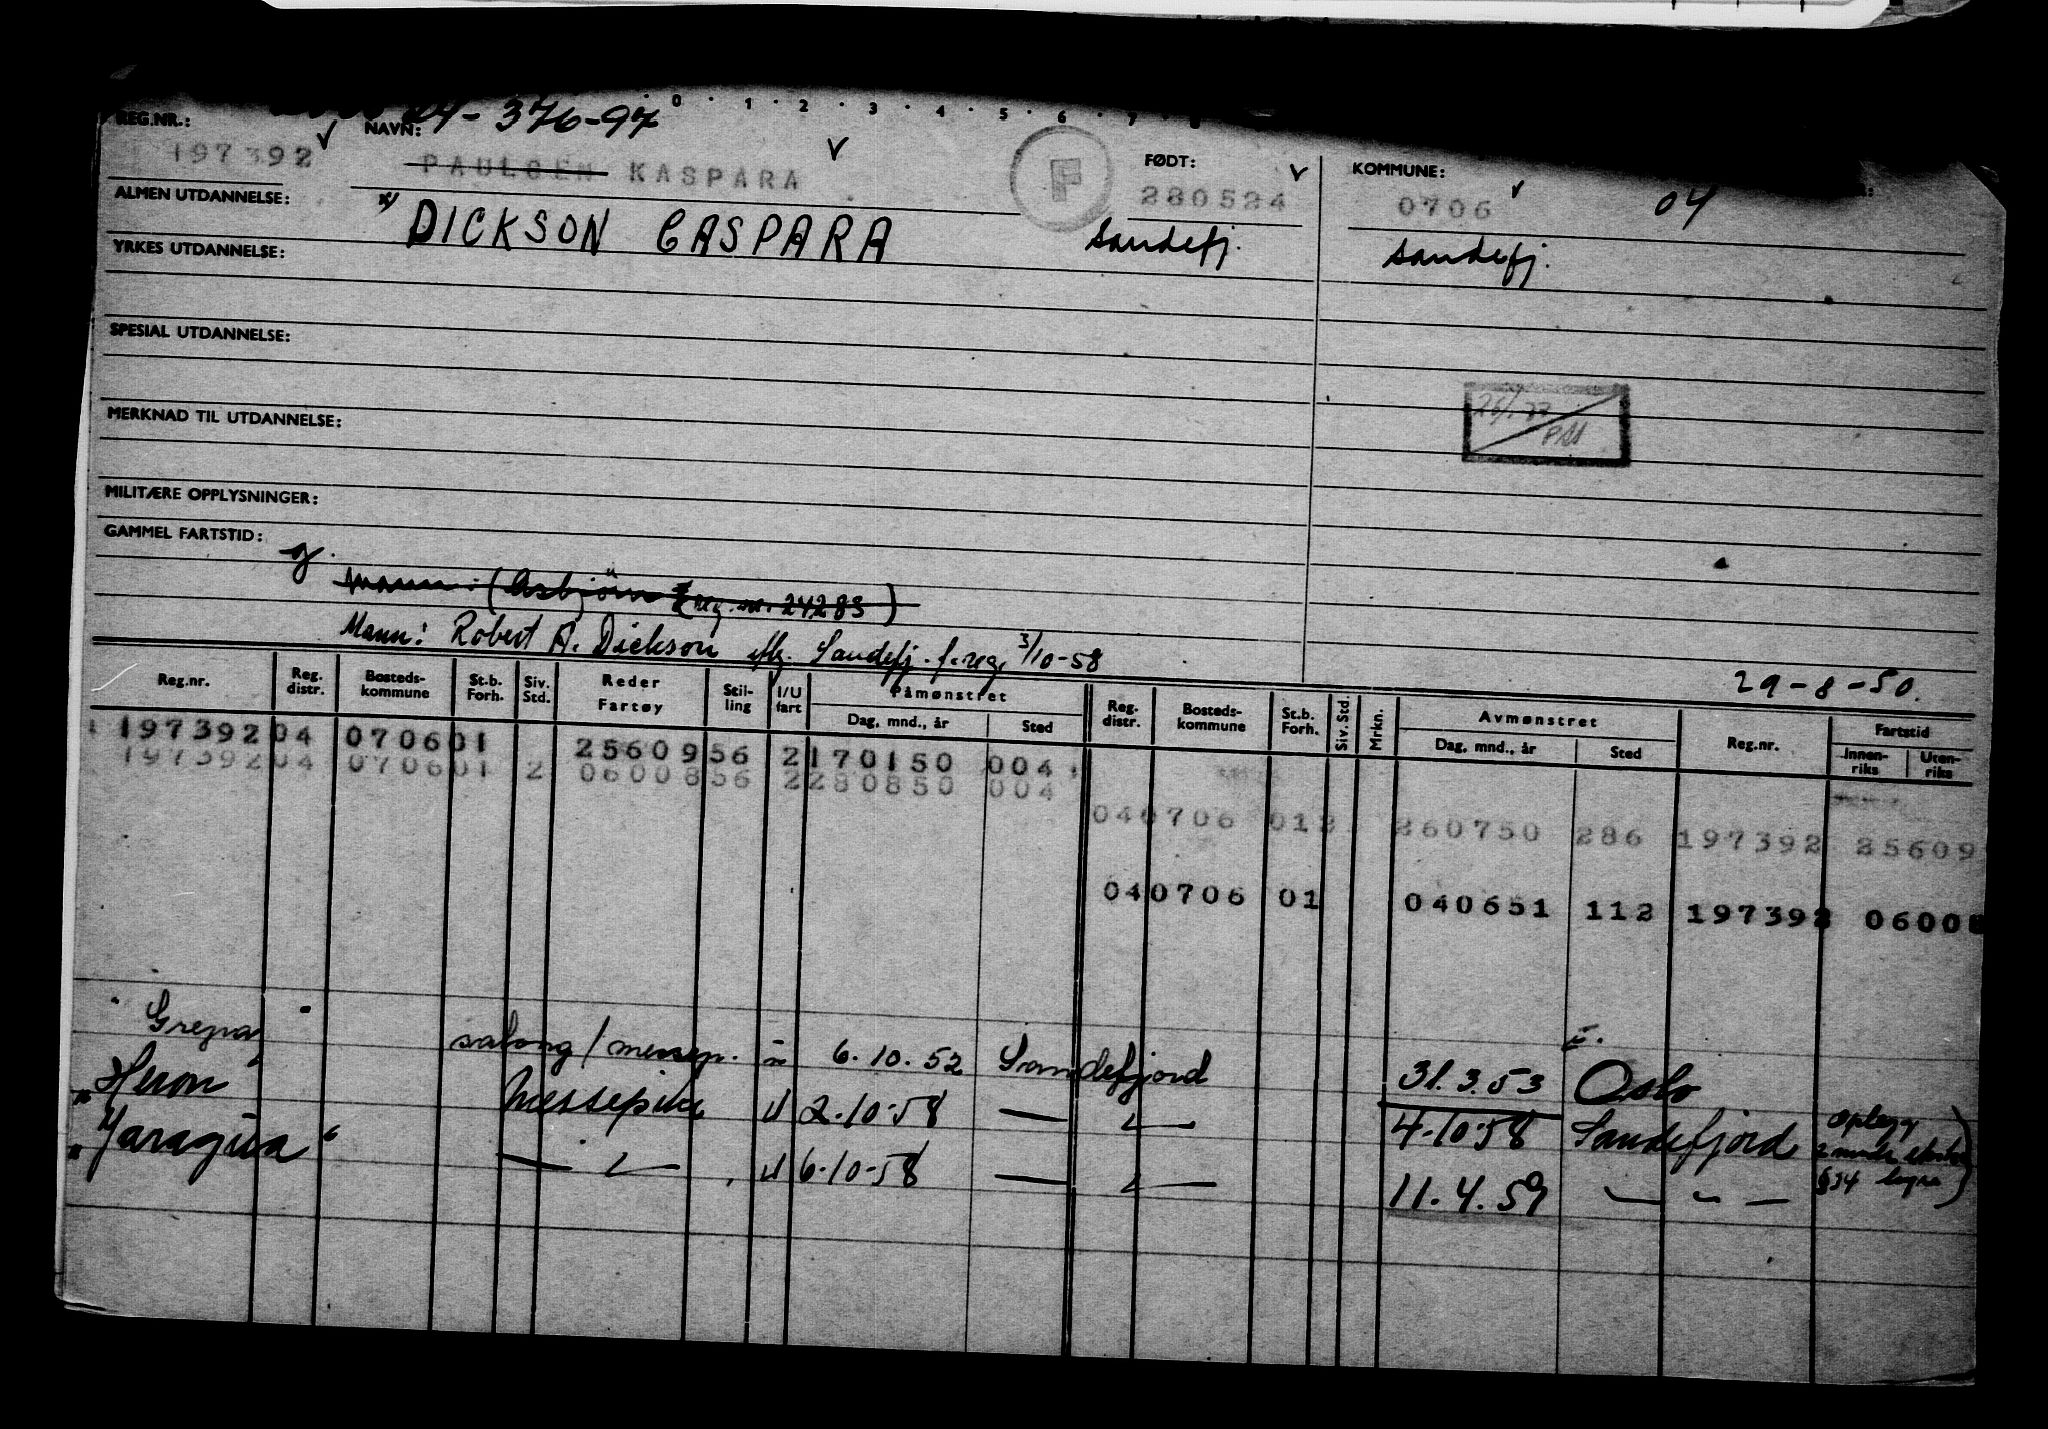 24-376-97
0 · 1 · 2 · 3 · 4 · 5 · 6 · 7 · 8
REG.NR.: NAVN: FØDT: KOMMUNE:
197392 PAULSEN KASPARA F 280524 0706 04
ALMEN UTDANNELSE:
DICKSON CASPARA Sandefj. Sandefj.
YRKES UTDANNELSE:
SPESIAL UTDANNELSE:
26/1 77
PAA
MERKNAD TIL UTDANNELSE:
MILITÆRE OPPLYSNINGER:
GAMMEL FARTSTID:
g.
Mann: (Asbjörn reg. nr. 24283)
Mann: Robert A. Dickson Sandefj. f. reg. 3/10-58
29-8-50.
Reg.nr. Reg. distr. Bosteds-kommune St.b. Forh. Siv. Std. Reder Fartøy Stil-ling I/U fart Påmønstret Dag, mnd., år Sted Reg. distr. Bosteds-kommune St.b. Forh. Siv. Std. Mrkn. Avmønstret Dag, mnd., år Sted Reg.nr. Fartstid Innen-riks Uten-riks
197392 04 0706 01 25609 56 2 170150 004
197392 04 0706 01 2 06008 56 2 280850 004
04 0706 01 2 260750 286 197392 25609
04 0706 01 040651 112 197392 0600
"Gregna" salong/messep. " 6.10.52 Sandefjord 31.3.53 Oslo
"Heron" Messepike U 2-10-58 — " — 4-10-58 Sandefjord
"Yaragua" — " — U 6-10-58 — " — 11.4.59 — " —
opplegg
§34